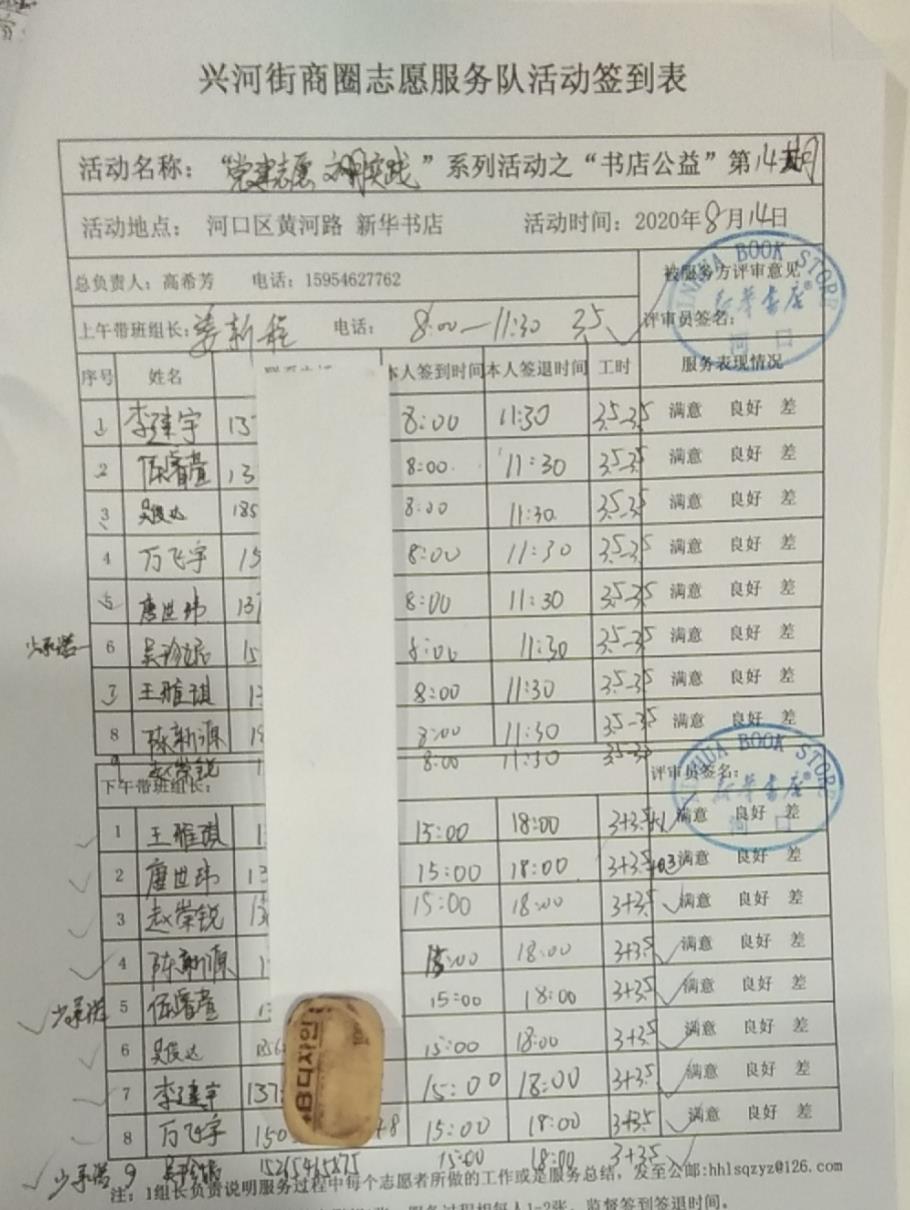 兴河街商圈志愿服务队活动签到表
活动名称：“党建志愿 文明实践”系列活动之“书店公益”第14期
活动地点： 河口区黄河路 新华书店 活动时间：2020年8月14日
总负责人：高希芳 电话：15954627762 被服务方评审意见
XINHUA BOOK STORE
新华书店®
河口
上午带班组长： 电话： 8:00—11:30 3.5 评审员签名：
序号 姓名 本人签到时间 本人签退时间 工时 服务表现情况
1 李建宇 13 8:00 11:30 3.5-3.5 满意 良好 差
2 任睿萱 13 8:00 11:30 3.5-3.5 满意 良好 差
3 吴俊达 185 8:00 11:30 3.5-3.5 满意 良好 差
4 万飞宇 15 8:00 11:30 3.5-3.5 满意 良好 差
5 唐世玮 137 8:00 11:30 3.5-3.5 满意 良好 差
少承诺 6 15 8:00 11:30 3.5-3.5 满意 良好 差
7 王雅琪 8:00 11:30 3.5-3.5 满意 良好 差
8 陈新源 8:00 11:30 3.5-3.5 满意 良好 差
9 赵崇锐 8:00 11:30 3.5-3.5
下午带班组长： 评审员签名：
XINHUA BOOK STORE
新华书店®
河口
1 王雅琪 15:00 18:00 3+3.5+1 满意 良好 差
2 唐世玮 13 15:00 18:00 3+3.5 满意 良好 差
3 赵崇锐 15:00 18:00 3+3.5 满意 良好 差
4 陈新源 15:00 18:00 3+3.5 满意 良好 差
少承诺 5 任睿萱 15:00 18:00 3+3.5 满意 良好 差
6 吴俊达 15:00 18:00 3+3.5 满意 良好 差
7 李建宇 137 15:00 18:00 3+3.5 满意 良好 差
8 万飞宇 150 +8 15:00 18:00 3+3.5 满意 良好 差
少承诺 9 15265465875 15:00 18:00 3+3.5
注：1组长负责说明服务过程中每个志愿者所做的工作或是服务总结，发至公邮:hhlsqzyz@126.com
服务过程相每人1-2张，监督签到签退时间。
+B디자인